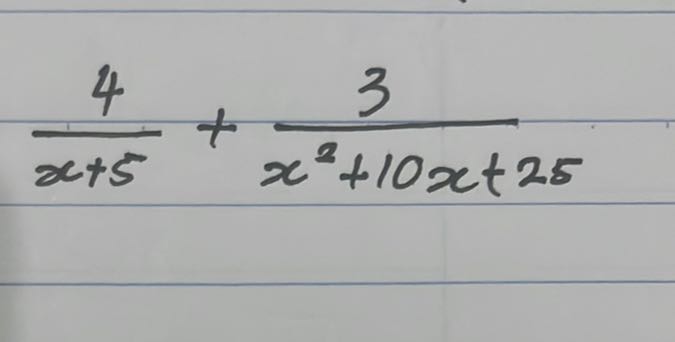 4/(x+5) + 3/(x²+10x+25)